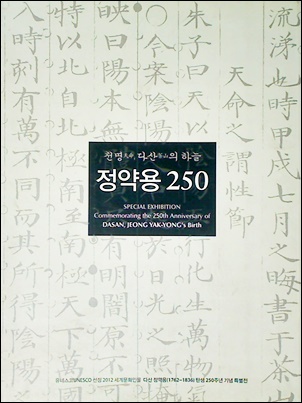 流涕也時甲戌七月之晦
天命之謂性節
朱子曰天以
化生萬物
○今案陰陽
映曰陽本無
有明闇原不
特以北自北
萬國或
入時刻有萬不同而其所得
천명天命 다산茶山의 하늘
정약용 250
SPECIAL EXHIBITION
Commemorating the 250th Anniversary of
DASAN, JEONG YAK-YONG's Birth
유네스코UNESCO 선정 2012 세계문화인물 다산 정약용(1762~1836) 탄생 250주년 기념 특별전